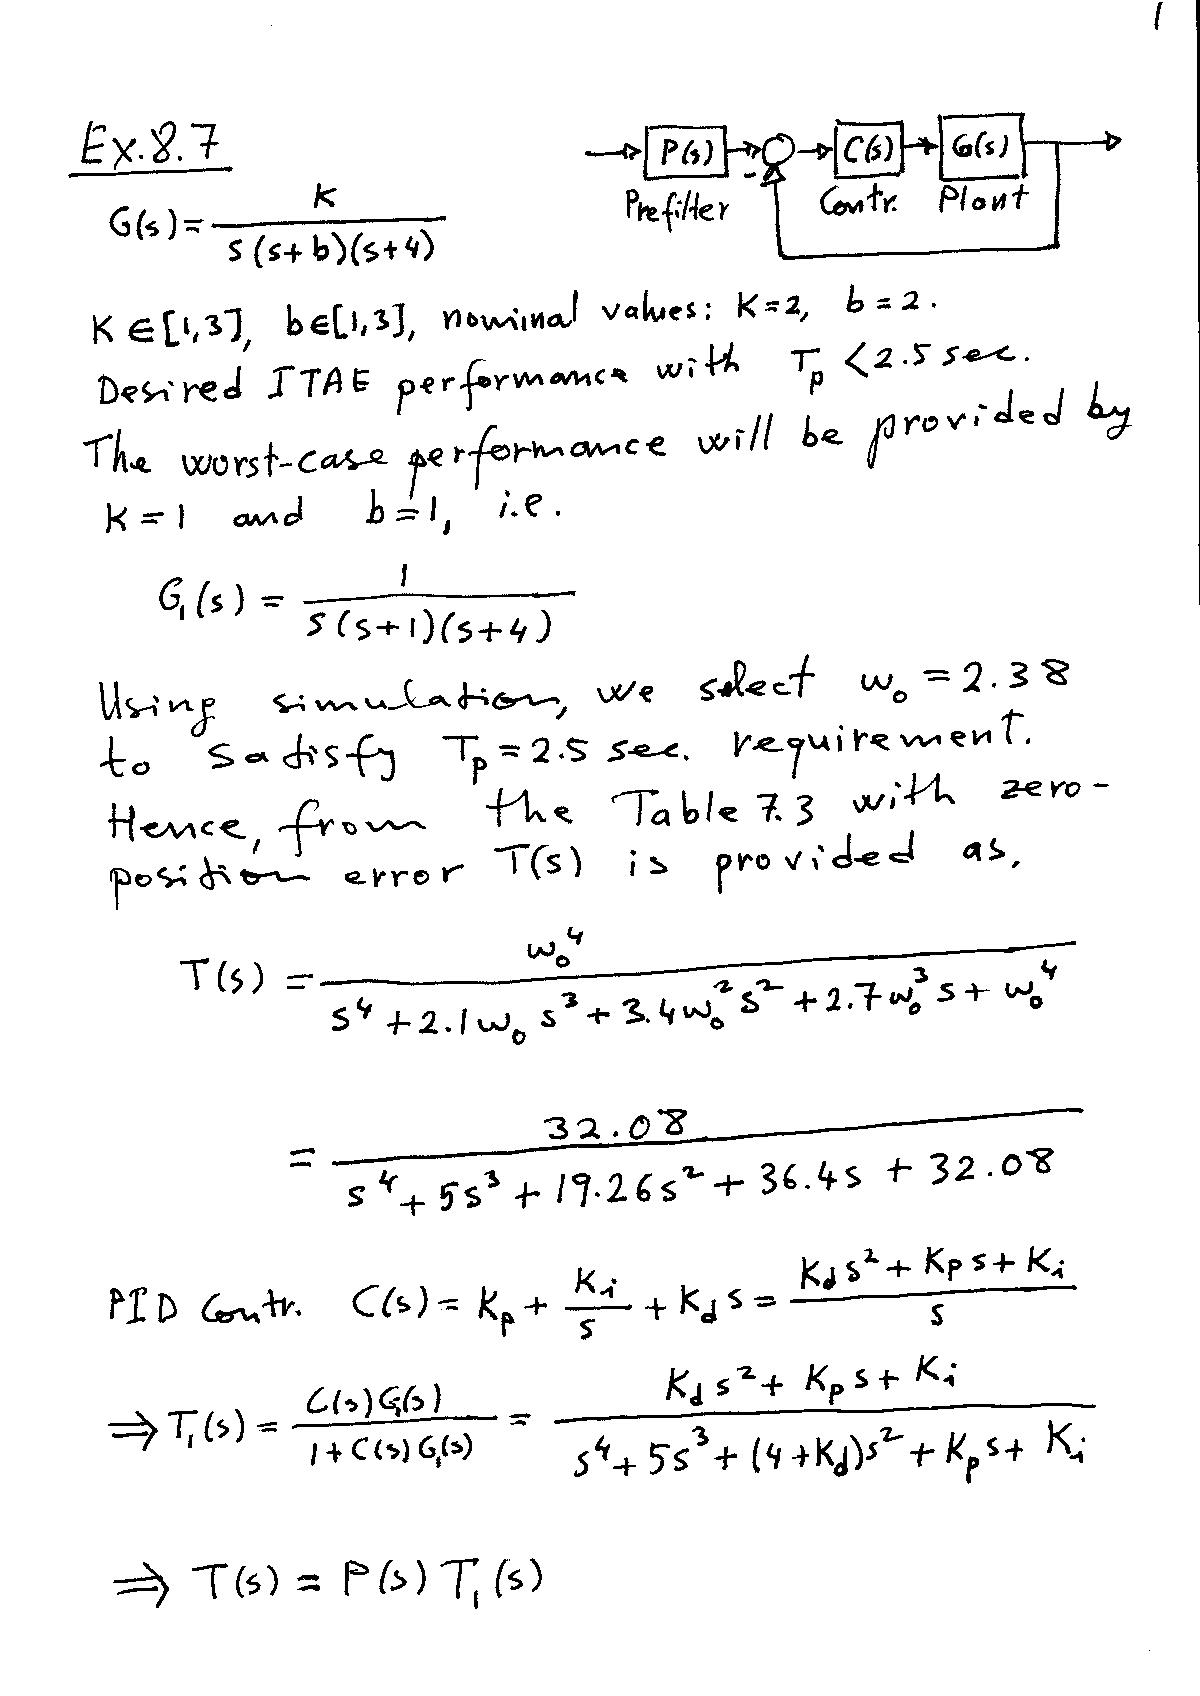 1
Ex.8.7
P(s) C(s) G(s)
Prefilter Contr. Plant
-
G(s) = K / s(s+b)(s+4)
K∈[1,3], b∈[1,3], nominal values: K=2, b=2.
Desired ITAE performance with Tp < 2.5 sec.
The worst-case performance will be provided by
K=1 and b=1, i.e.
G₁(s) = 1 / s(s+1)(s+4)
Using simulation, we select w₀ = 2.38
to satisfy Tp = 2.5 sec. requirement.
Hence, from the Table 7.3 with zero-
position error T(s) is provided as,
T(s) = w₀⁴ / s⁴ + 2.1w₀ s³ + 3.4w₀² s² + 2.7w₀³ s + w₀⁴
= 32.08 / s⁴ + 5s³ + 19.26s² + 36.4s + 32.08
PID Contr. C(s) = Kp + Ki / s + Kd s = Kd s² + Kp s + Ki / s
⇒ T₁(s) = C(s)G₁(s) / 1 + C(s)G₁(s) = Kd s² + Kp s + Ki / s⁴ + 5s³ + (4+Kd)s² + Kp s + Ki
⇒ T(s) = P(s) T₁(s)